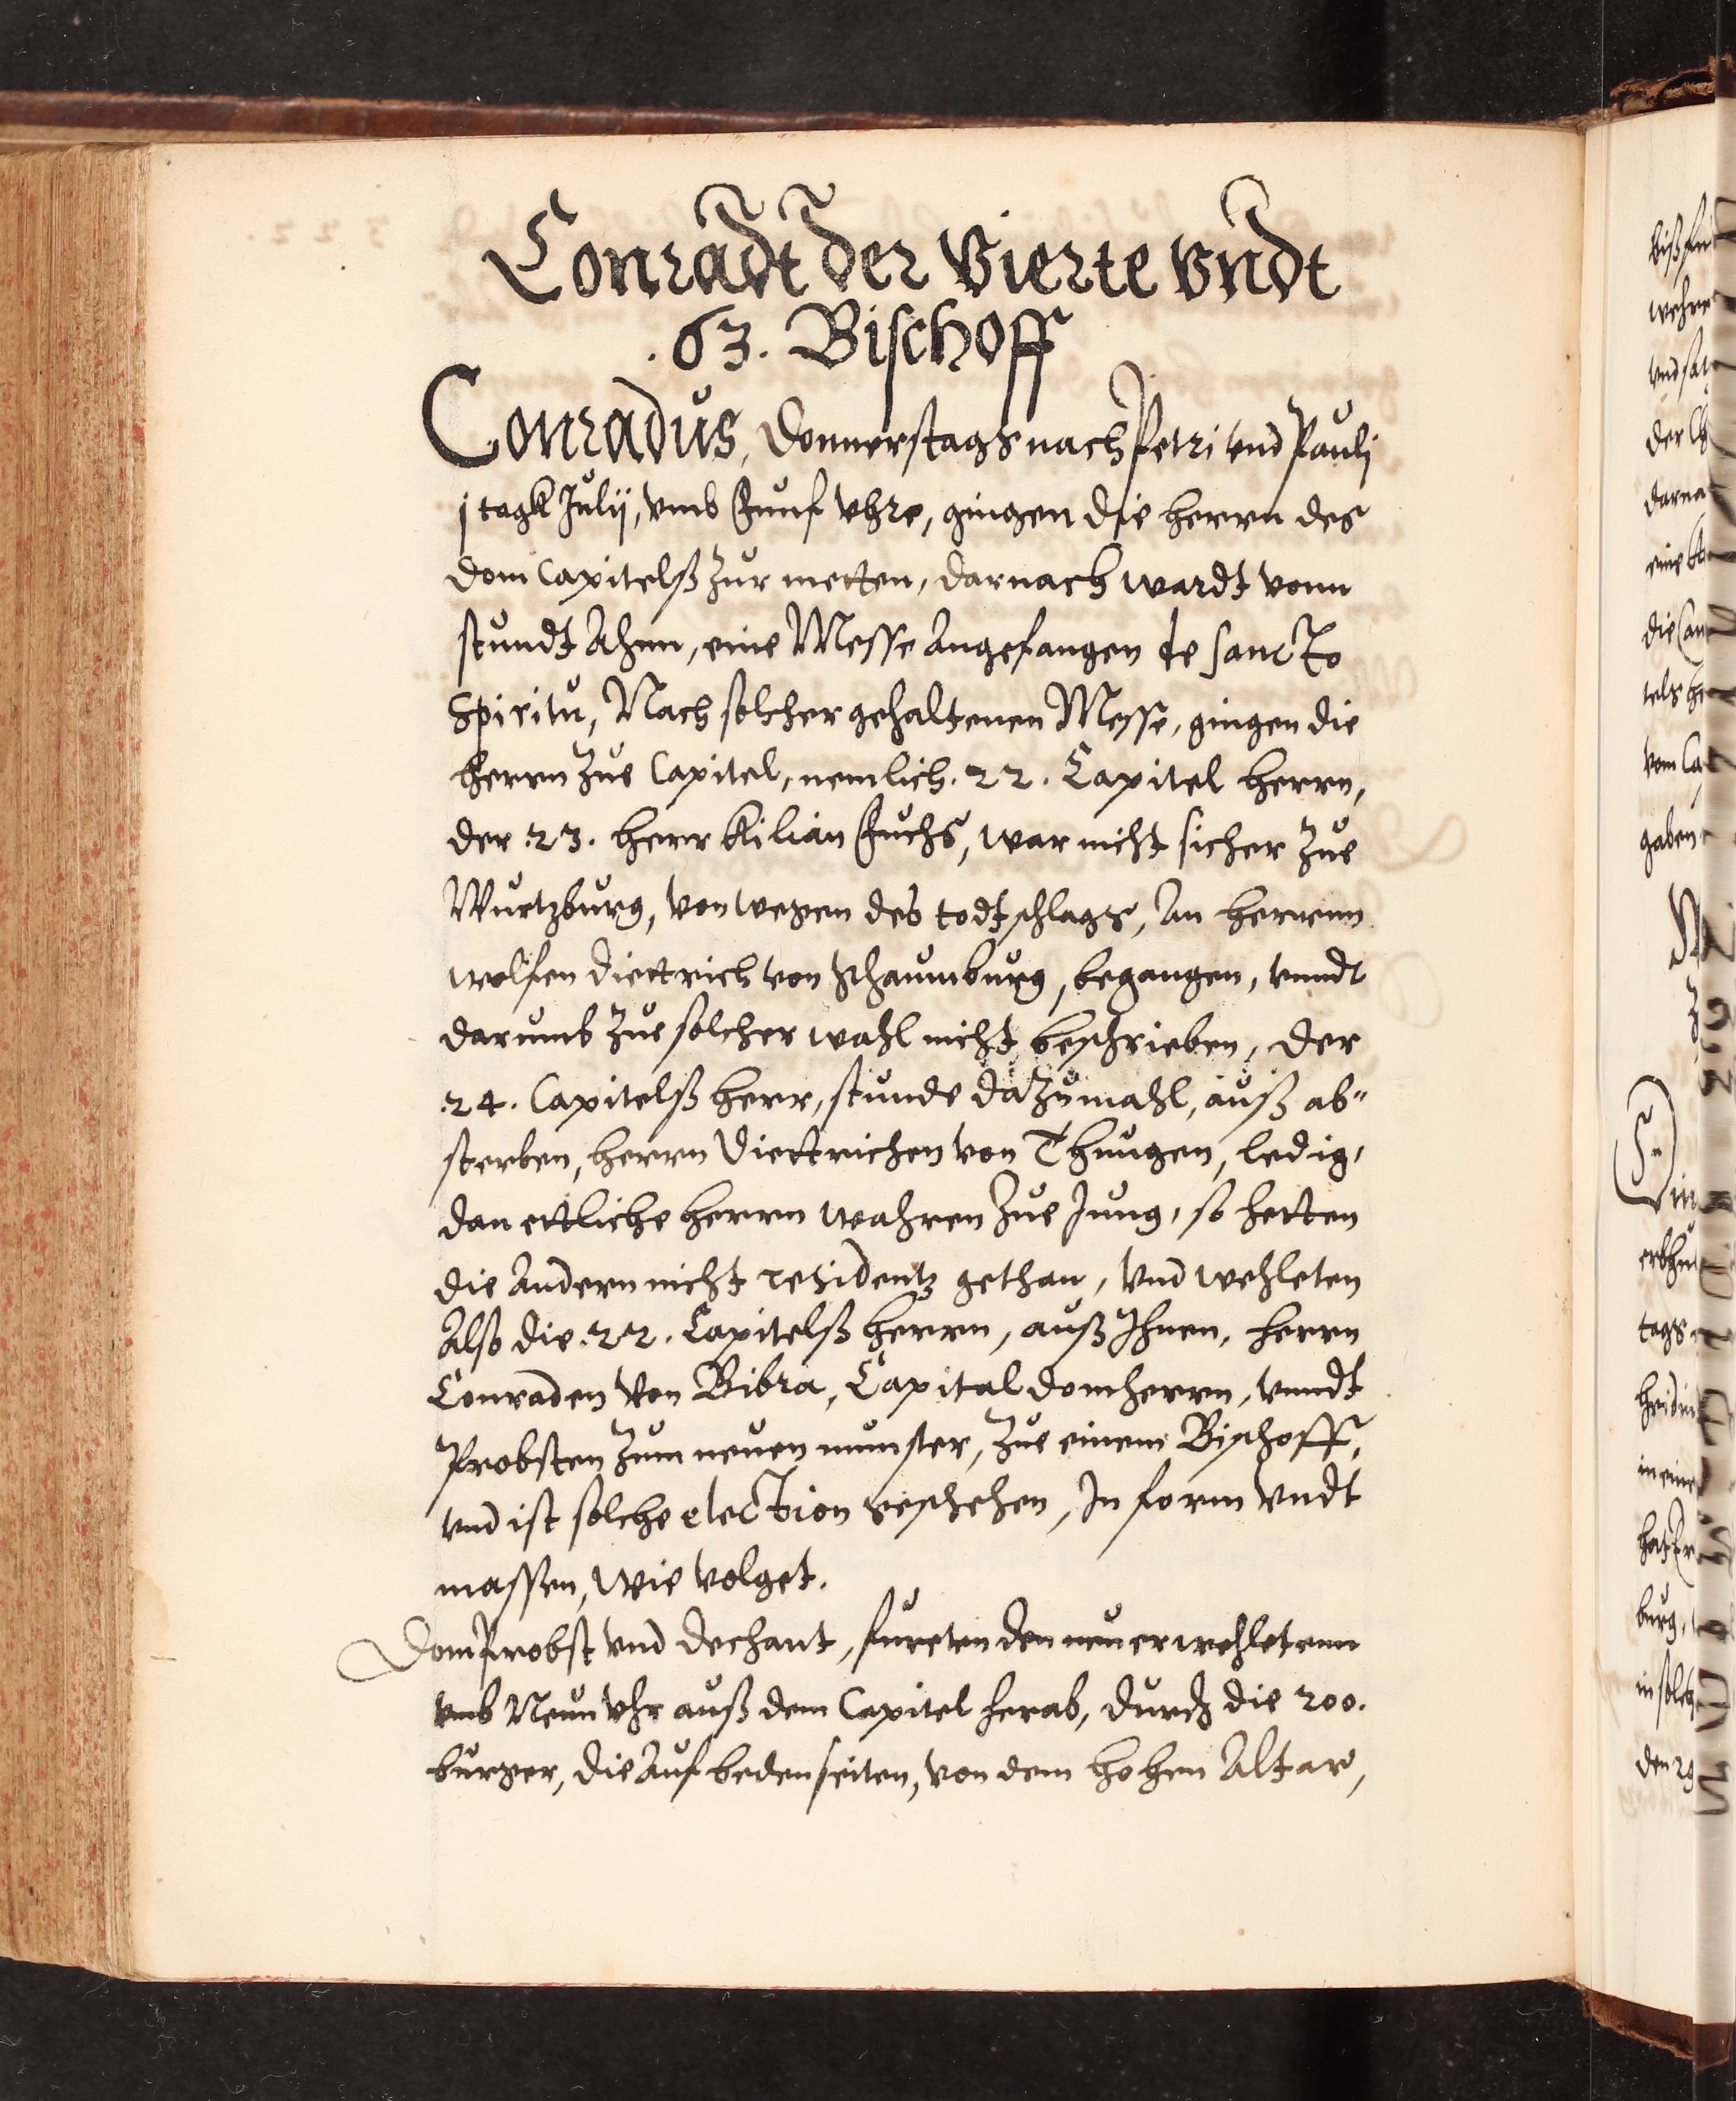 Conradt der vierte vndt
.63. Bischoff
Conradus, Donnerstags nach Petri vnd Pauli
j tagk Julij, vmb Funf vhre, gingen die herrn des
dom Capitelß zur metten, darnach wardt vonn
stundt Ahnn, eine Messe Angefangen de sancto
Spiritu, Nach solcher gehaltenen Messe, gingen die
herrn zue Capitel, nemlich .22. Capitel herrn,
der .23. herr Kilian Fuchs, war nicht sicher zue
Wurtzburg, von wegen des todtschlags, An herrenn
wolfen diettrich von schaumburg, begangen, vnndt
darumb zue solcher wahl nicht beschrieben, der
.24. Capitelß herr, stunde dazumahl, auß ab"
sterben, herrn Diettrichen von Thungen, ledig,
dan ettliche herrn wahren zue Jung, so hetten
die Andern nicht residentz gethan, vnd wehleten
Also die .22. Capitelß herrn, auß Ihnen, herrn
Conraden von Bibra, Capital domherrn, vnndt
Probsten zum neuen munster, zue einem Bischoff,
vnd ist solche election geschehen, In form vndt
massen, wie volget.
Dom Probst vnd dechant, fureten den neu erwehletenn
vmb Neun vhr auß dem Capitel herab, durch die 200.
burger, die Auf beden seiten, von dem hohen Altar,